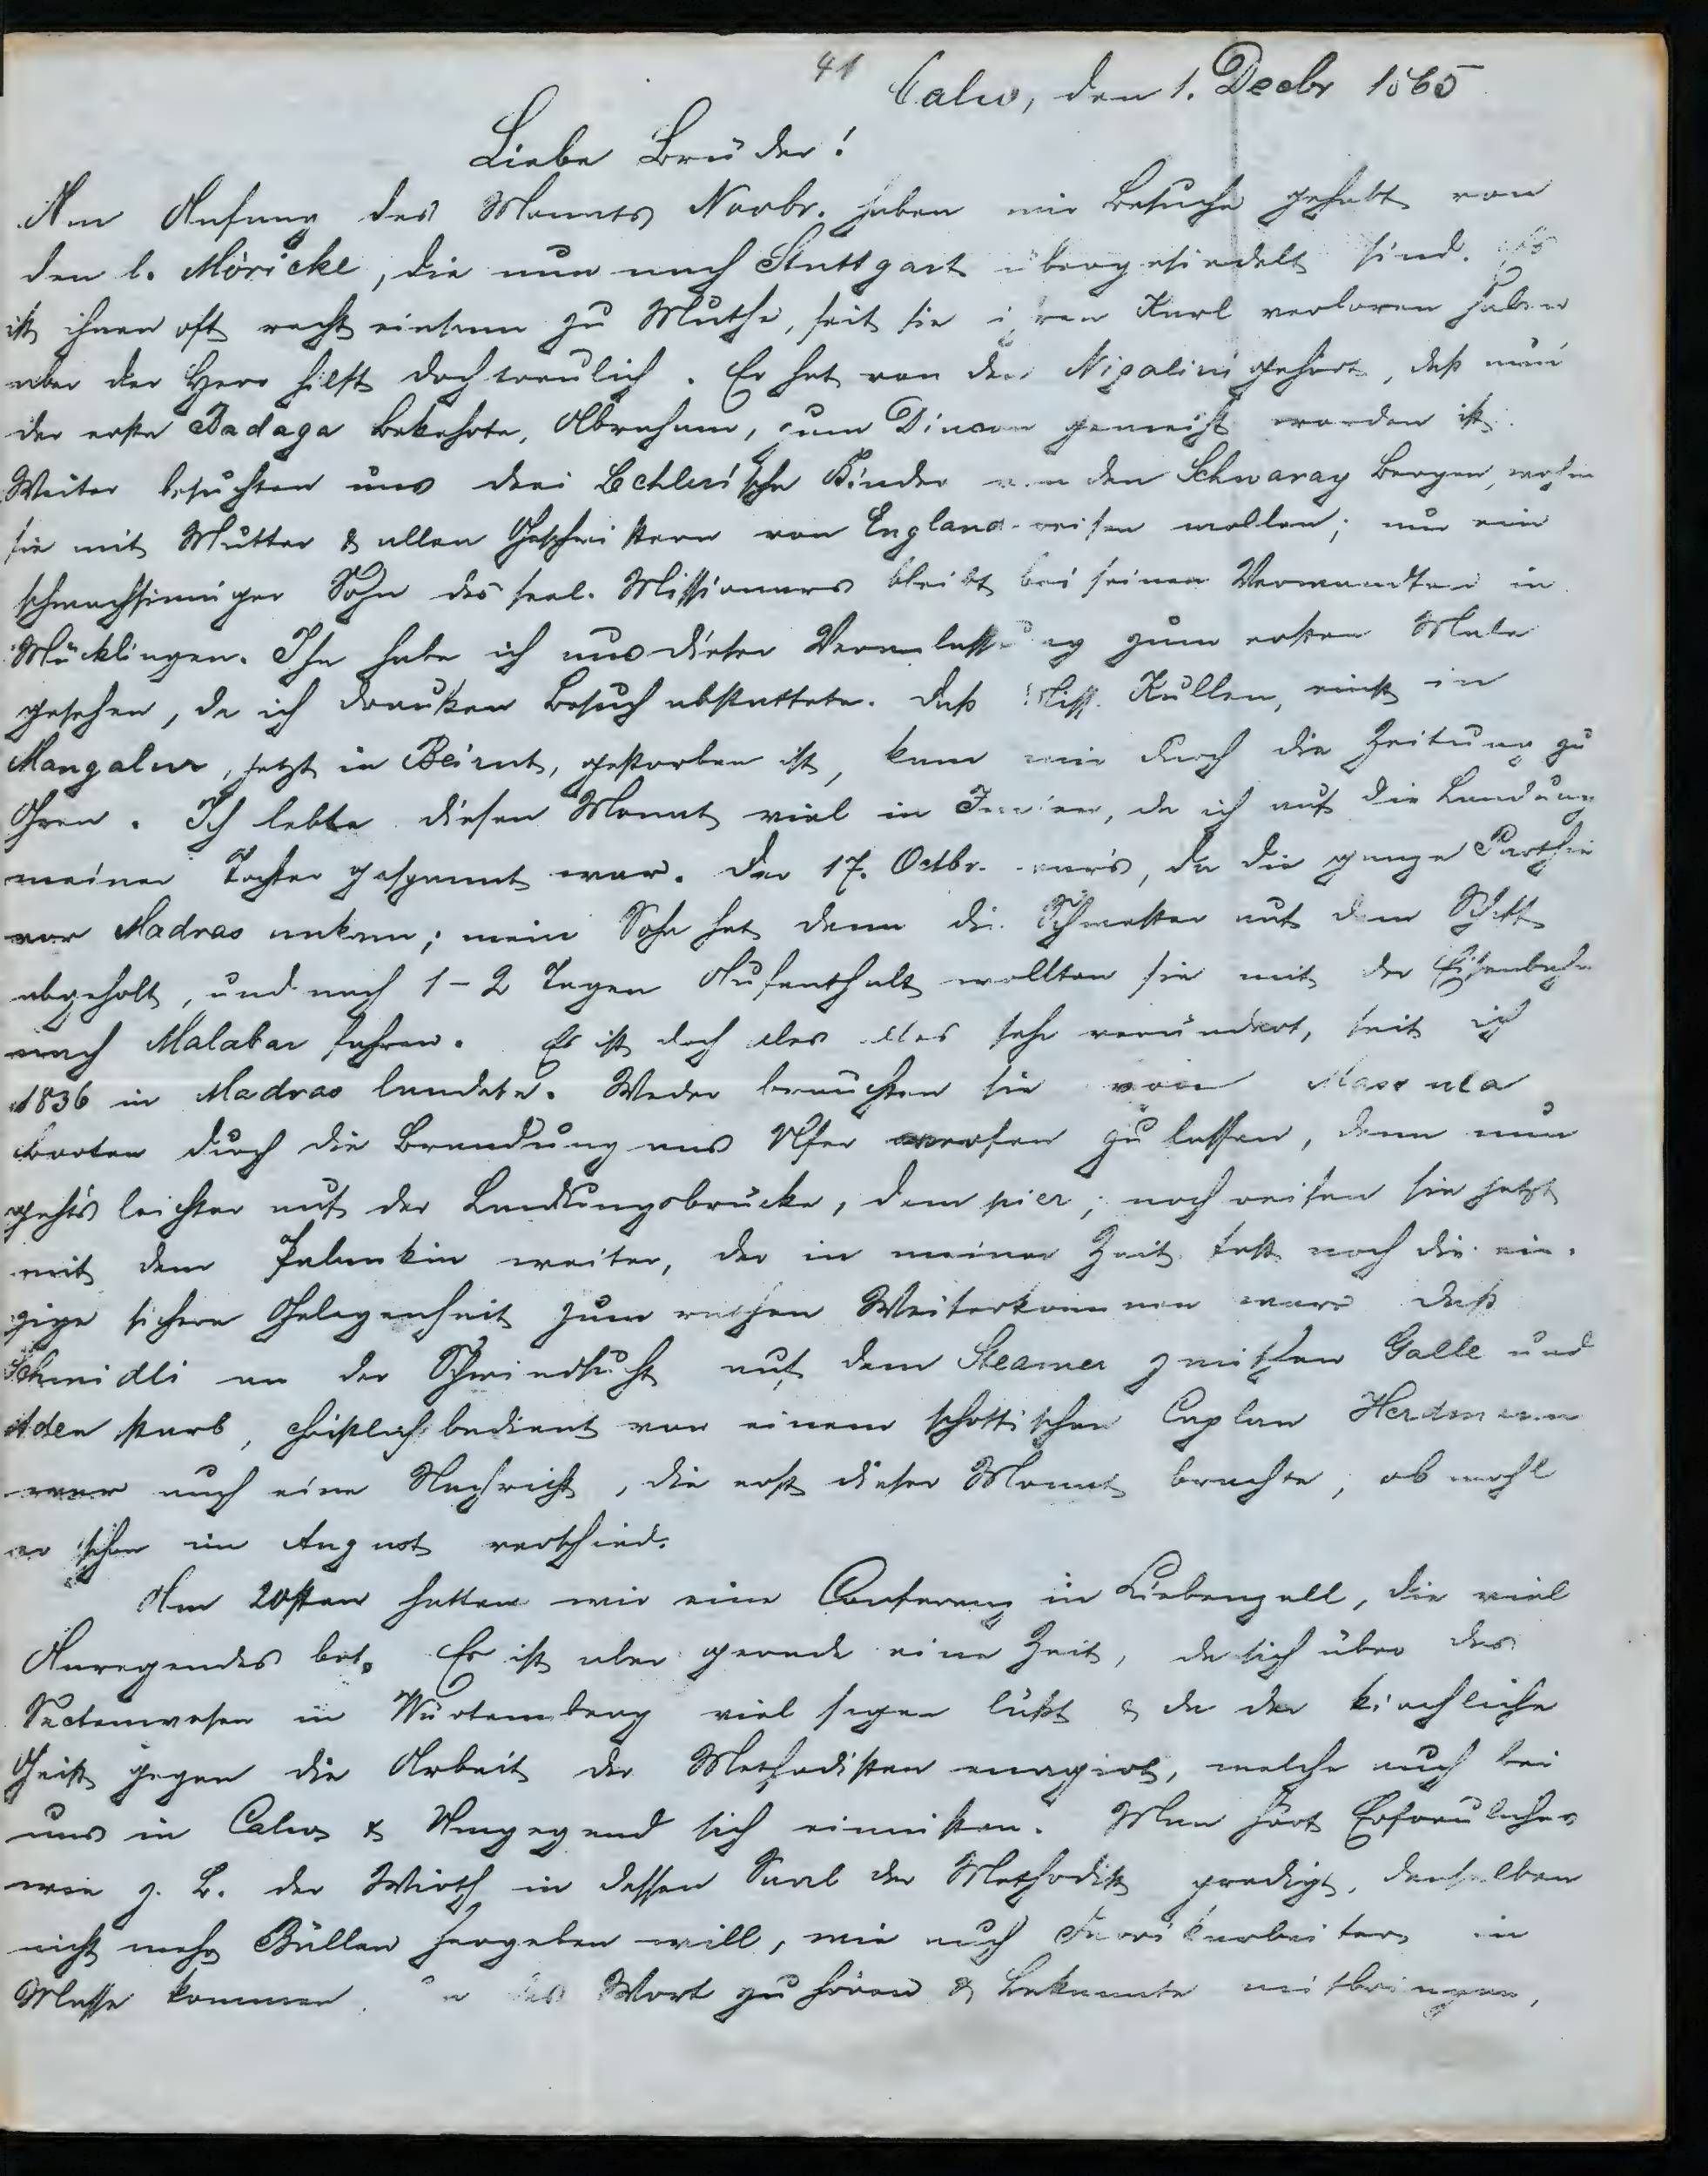 41
Calw, den 1. Decbr 1865
Liebe Brüder!
Am Anfang des Monats Novbr. haben wir Besuche gehabt von
den l. Möricke, die nun nach Stuttgart übergesiedelt sind. Es
ist ihnen oft recht einsam zu Muthe, seit sie ihren Karl verloren haben
aber der Herr hilft doch treulich. Er hat von den Nigalini gehört, daß nun
der erste Badaga Bekehrte, Abraham, zum Diacon geweiht worden ist.
Weiter besuchten uns drei Bühlersche Kinder von den Schwarzen Bergen, wohin
sie mit Mutter & allen Geschwistern von England reisen wollen; nur ein
schwachsinniger Sohn des seel. Missionars bleibt bei seinen Verwandten in
Möcklingen. Ihn habe ich aus dieser Veranlassung zum ersten Male
gesehen, da ich draußen Besuch abstattete. Daß Miss. Kullen, einst in
Mangalur, jetzt in Beirut, gestorben ist, kam mir durch die Zeitung zu
Ohren. Ich lebte diesen Monat viel in Indien, da ich auf die Landung
meiner Tochter gespannt war. Der 17. Octbr. wars, da die ganze Parthie
vor Madras ankam; mein Sohn hat dann die Schwester auf dem Schiff
abgeholt, und nach 1-2 Tagen Aufenthalt wollten sie mit der Eisenbahn
nach Malabar fahren. Es ist doch alles sehr verändert, seit ich
1836 in Madras landete. Weder brauchten sie von Massula
Booten durch die Brandung ans Ufer werfen zu lassen, denn nun
gehts leichter auf der Landungsbrücke, dem pier; noch reisen sie jetzt
mit dem Palankin weiter, der in meiner Zeit fast noch die ein-
zige sichere Gelegenheit zum raschen Weiterkommen war. Daß
Schmidli an der Schwindsucht auf dem Steamer zwischen Galle und
Aden starb, christlich bedient von einem schottischen Caplan Herdmann
war auch eine Nachricht, die erst dieser Monat brachte, obwohl
er schon im August verschied.
Am 20sten hatten wir eine Conferenz in Liebenzell, die viel
Anregendes bot. Es ist aber gerade eine Zeit, da sich über das
Sectenwesen in Würtemberg viel sagen läßt & da der kirchliche
Geist gegen die Arbeit der Methodisten reagirt, welche auch bei
uns in Calw & Umgegend sich einnisten. Man hört Erfreuliches
wie z. B. der Wirth in dessen Saal der Methodist predigt, denselben
nicht mehr Bällen hergeben will, wie auch Fabrikarbeiter in
Masse kommen um das Wort zu hören & Bekannte mitbringen,